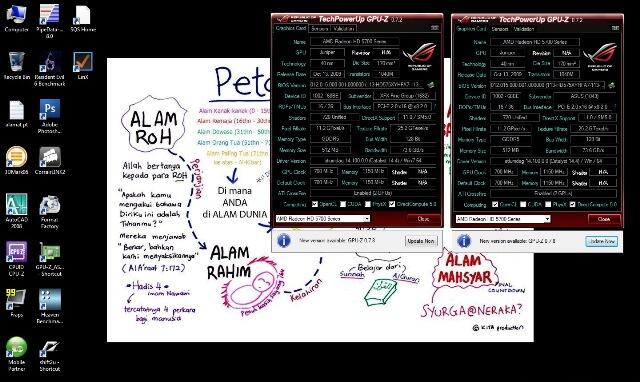 Computer
PipeData-... 8.0
SQS Home
Recycle Bin
Resident Evil 6 Benchmark
LinX
alamat.pt
Adobe Photosh...
3DMark06
CorrainLINK2
AutoCAD 2008
Format Factory
CPUID CPU-Z
GPU-Z_AS... Shortcut
Fraps
Heaven Benchma...
Mobile Partner
shift2u - Shortcut
Peta
ALAM ROH
Alam Kanak kanak (0 - 15th
Alam Remaja (16thn - 30th
Alam Dewasa (31thn - 50th
Alam Orang Tua (51thn
Alam Paling Tua (71thn
ke atas - Al-Kibar)
Allah bertanya
kepada para ROH
"Apakah kamu
mengakui bahawa
Diriku ini adalah
Tuhanmu?"
Mereka menjawab
"Benar, bahkan
kami menyaksikannya"
(Al A'raaf 7:172)
Hadis 4
imam Nawawi
tercatatnya 4 perkara
bagi manusia
Perjanjian
Di mana
ANDA
di ALAM DUNIA
ALAM
RAHIM
Kelahiran
Belajar dari
Sunnah
AlQuran
ALAM
MAHSYAR
FINAL
COUNTDOWN
SYURGA@NERAKA?
© KITA production
TechPowerUp GPU-Z 0.7.2
Graphics Card Sensors Validation
Name AMD Radeon HD 5700 Series
GPU Juniper Revision N/A
Technology 40 nm Die Size 170 mm²
Release Date Oct 13, 2009 Transistors 1040M
BIOS Version
Device ID 1002 - 68BE Subvendor XFX Pine Group (1682)
ROPs/TMUs 16 / 36 Bus Interface PCI-E 2.0 x16 @ x8 2.0
Shaders 720 Unified DirectX Support 11.0 / SM5.0
Pixel Fillrate 11.2 GPixel/s Texture Fillrate 25.2 GTexel/s
Memory Type GDDR5 Bus Width 128 Bit
Memory Size 512 MB Bandwidth 73.6 GB/s
Driver Version atiumdag 14.100.0.0 (Catalyst 14.4) / Win7 64
GPU Clock 700 MHz Memory 1150 MHz Shader N/A
Default Clock 700 MHz Memory 1150 MHz Shader N/A
ATI CrossFire Enabled (2 GPUs)
Computing OpenCL CUDA PhysX DirectCompute 5.0
AMD Radeon HD 5700 Series Close
New version available: GPU-Z 0.7.8 Update Now
TechPowerUp GPU-Z 0.7.2
Graphics Card Sensors Validation
Name AMD Radeon HD 5700 Series
GPU Juniper Revision N/A
Technology 40 nm Die Size 170 mm²
Release Date Oct 13, 2009 Transistors 1040M
BIOS Version
Device ID 1002 - 68BE Subvendor
ROPs/TMUs 16 / 36 Bus Interface
Shaders 720 Unified DirectX Support 11.0 / SM5.0
Pixel Fillrate 11.2 GPixel/s Texture Fillrate 25.2 GTexel/s
Memory Type GDDR5 Bus Width 128 Bit
Memory Size 512 MB Bandwidth 73.6 GB/s
Driver Version atiumdag 14.100.0.0 (Catalyst 14.4) / Win7 64
GPU Clock 700 MHz Memory 1150 MHz Shader N/A
Default Clock 700 MHz Memory 1150 MHz Shader N/A
ATI CrossFire Enabled (2 GPUs)
Computing OpenCL CUDA PhysX DirectCompute 5.0
AMD Radeon HD 5700 Series Close
New version available: GPU-Z 0.7.8 Update Now